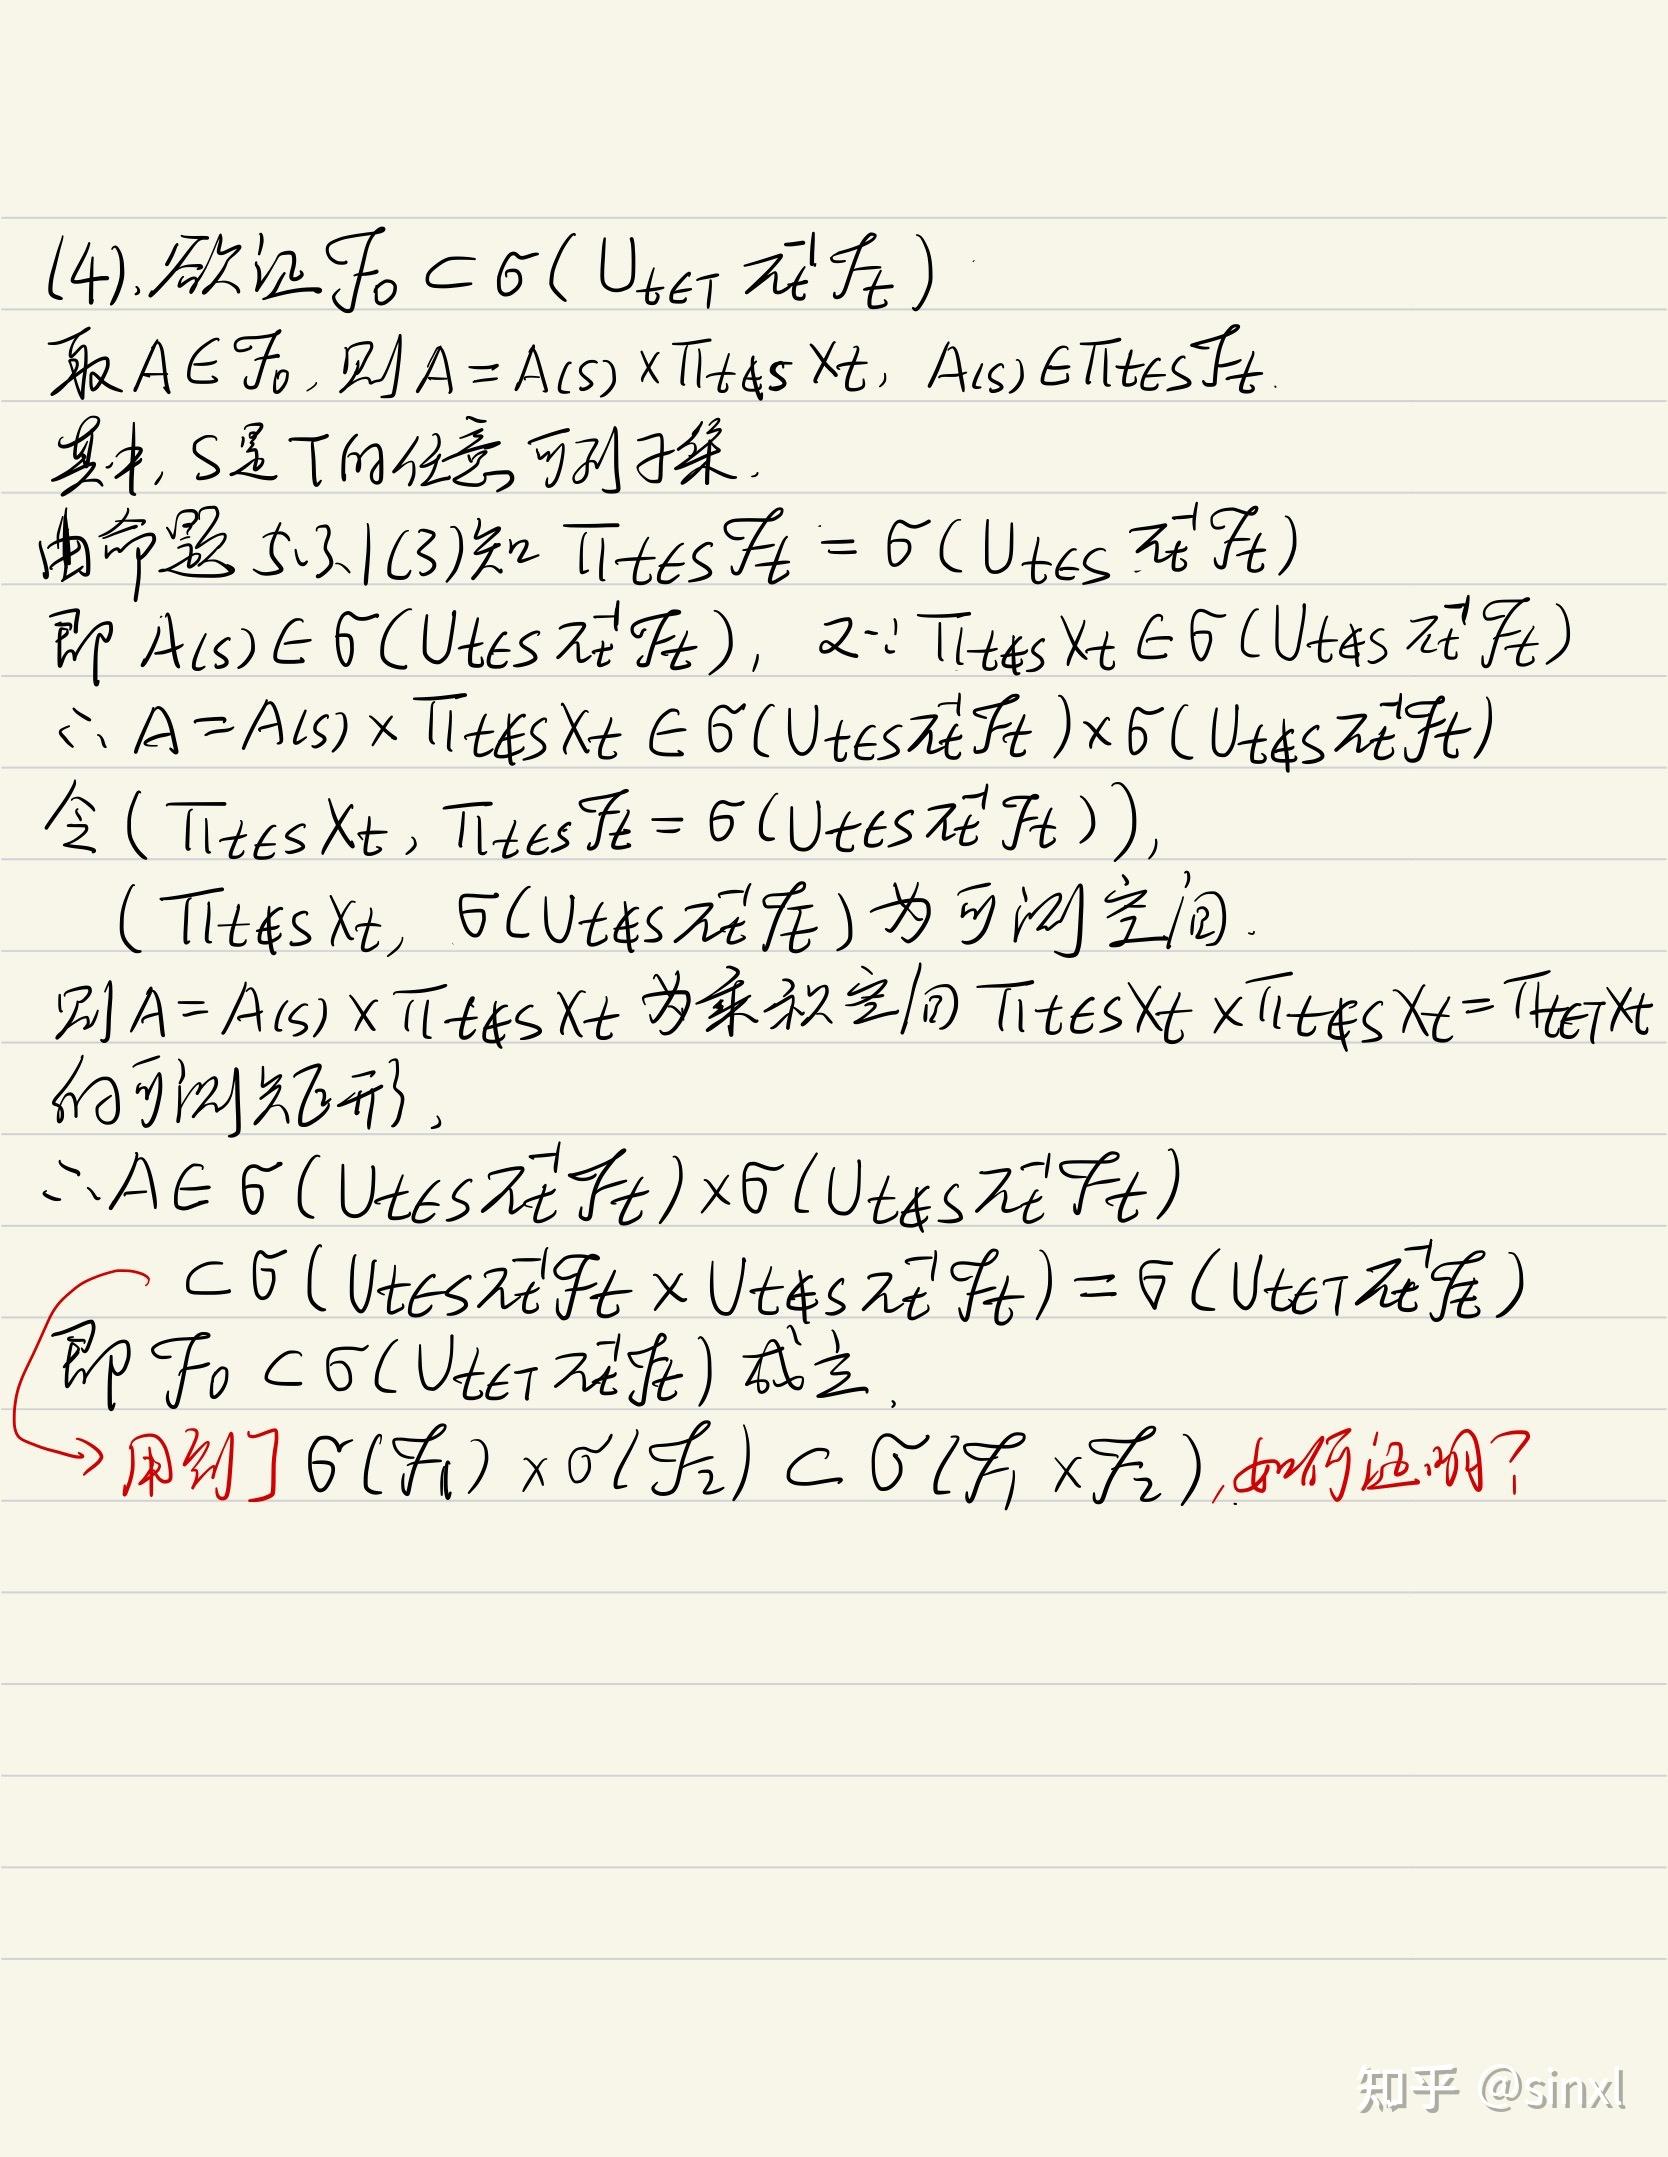 (4).欲证 ℱ₀ ⊂ σ(∪t∈T πt⁻¹ ℱt)
取 A∈ℱ₀, 则 A = A(s) × Πt∉s Xt, A(s) ∈ Πt∈s ℱt.
其中, S是T的任意可列子集.
由命题 5.3.1(3)知 Πt∈s ℱt = σ(∪t∈s πt⁻¹ ℱt)
即 A(s) ∈ σ(∪t∈s πt⁻¹ ℱt), 又∵ Πt∉s Xt ∈ σ(∪t∉s πt⁻¹ ℱt)
∴ A = A(s) × Πt∉s Xt ∈ σ(∪t∈s πt⁻¹ ℱt) × σ(∪t∉s πt⁻¹ ℱt)
令 (Πt∈s Xt, Πt∈s ℱt = σ(∪t∈s πt⁻¹ ℱt)),
(Πt∉s Xt, σ(∪t∉s πt⁻¹ ℱt) 为可测空间.
则 A = A(s) × Πt∉s Xt 为乘积空间 Πt∈s Xt × Πt∉s Xt = Πt∈T Xt
的可测矩形,
∴ A ∈ σ(∪t∈s πt⁻¹ ℱt) × σ(∪t∉s πt⁻¹ ℱt)
⊂ σ(∪t∈s πt⁻¹ ℱt × ∪t∉s πt⁻¹ ℱt) = σ(∪t∈T πt⁻¹ ℱt)
即 ℱ₀ ⊂ σ(∪t∈T πt⁻¹ ℱt) 成立.
用到了 σ(ℱ₁) × σ(ℱ₂) ⊂ σ(ℱ₁ × ℱ₂), 如何证明?
知乎 @sinxl